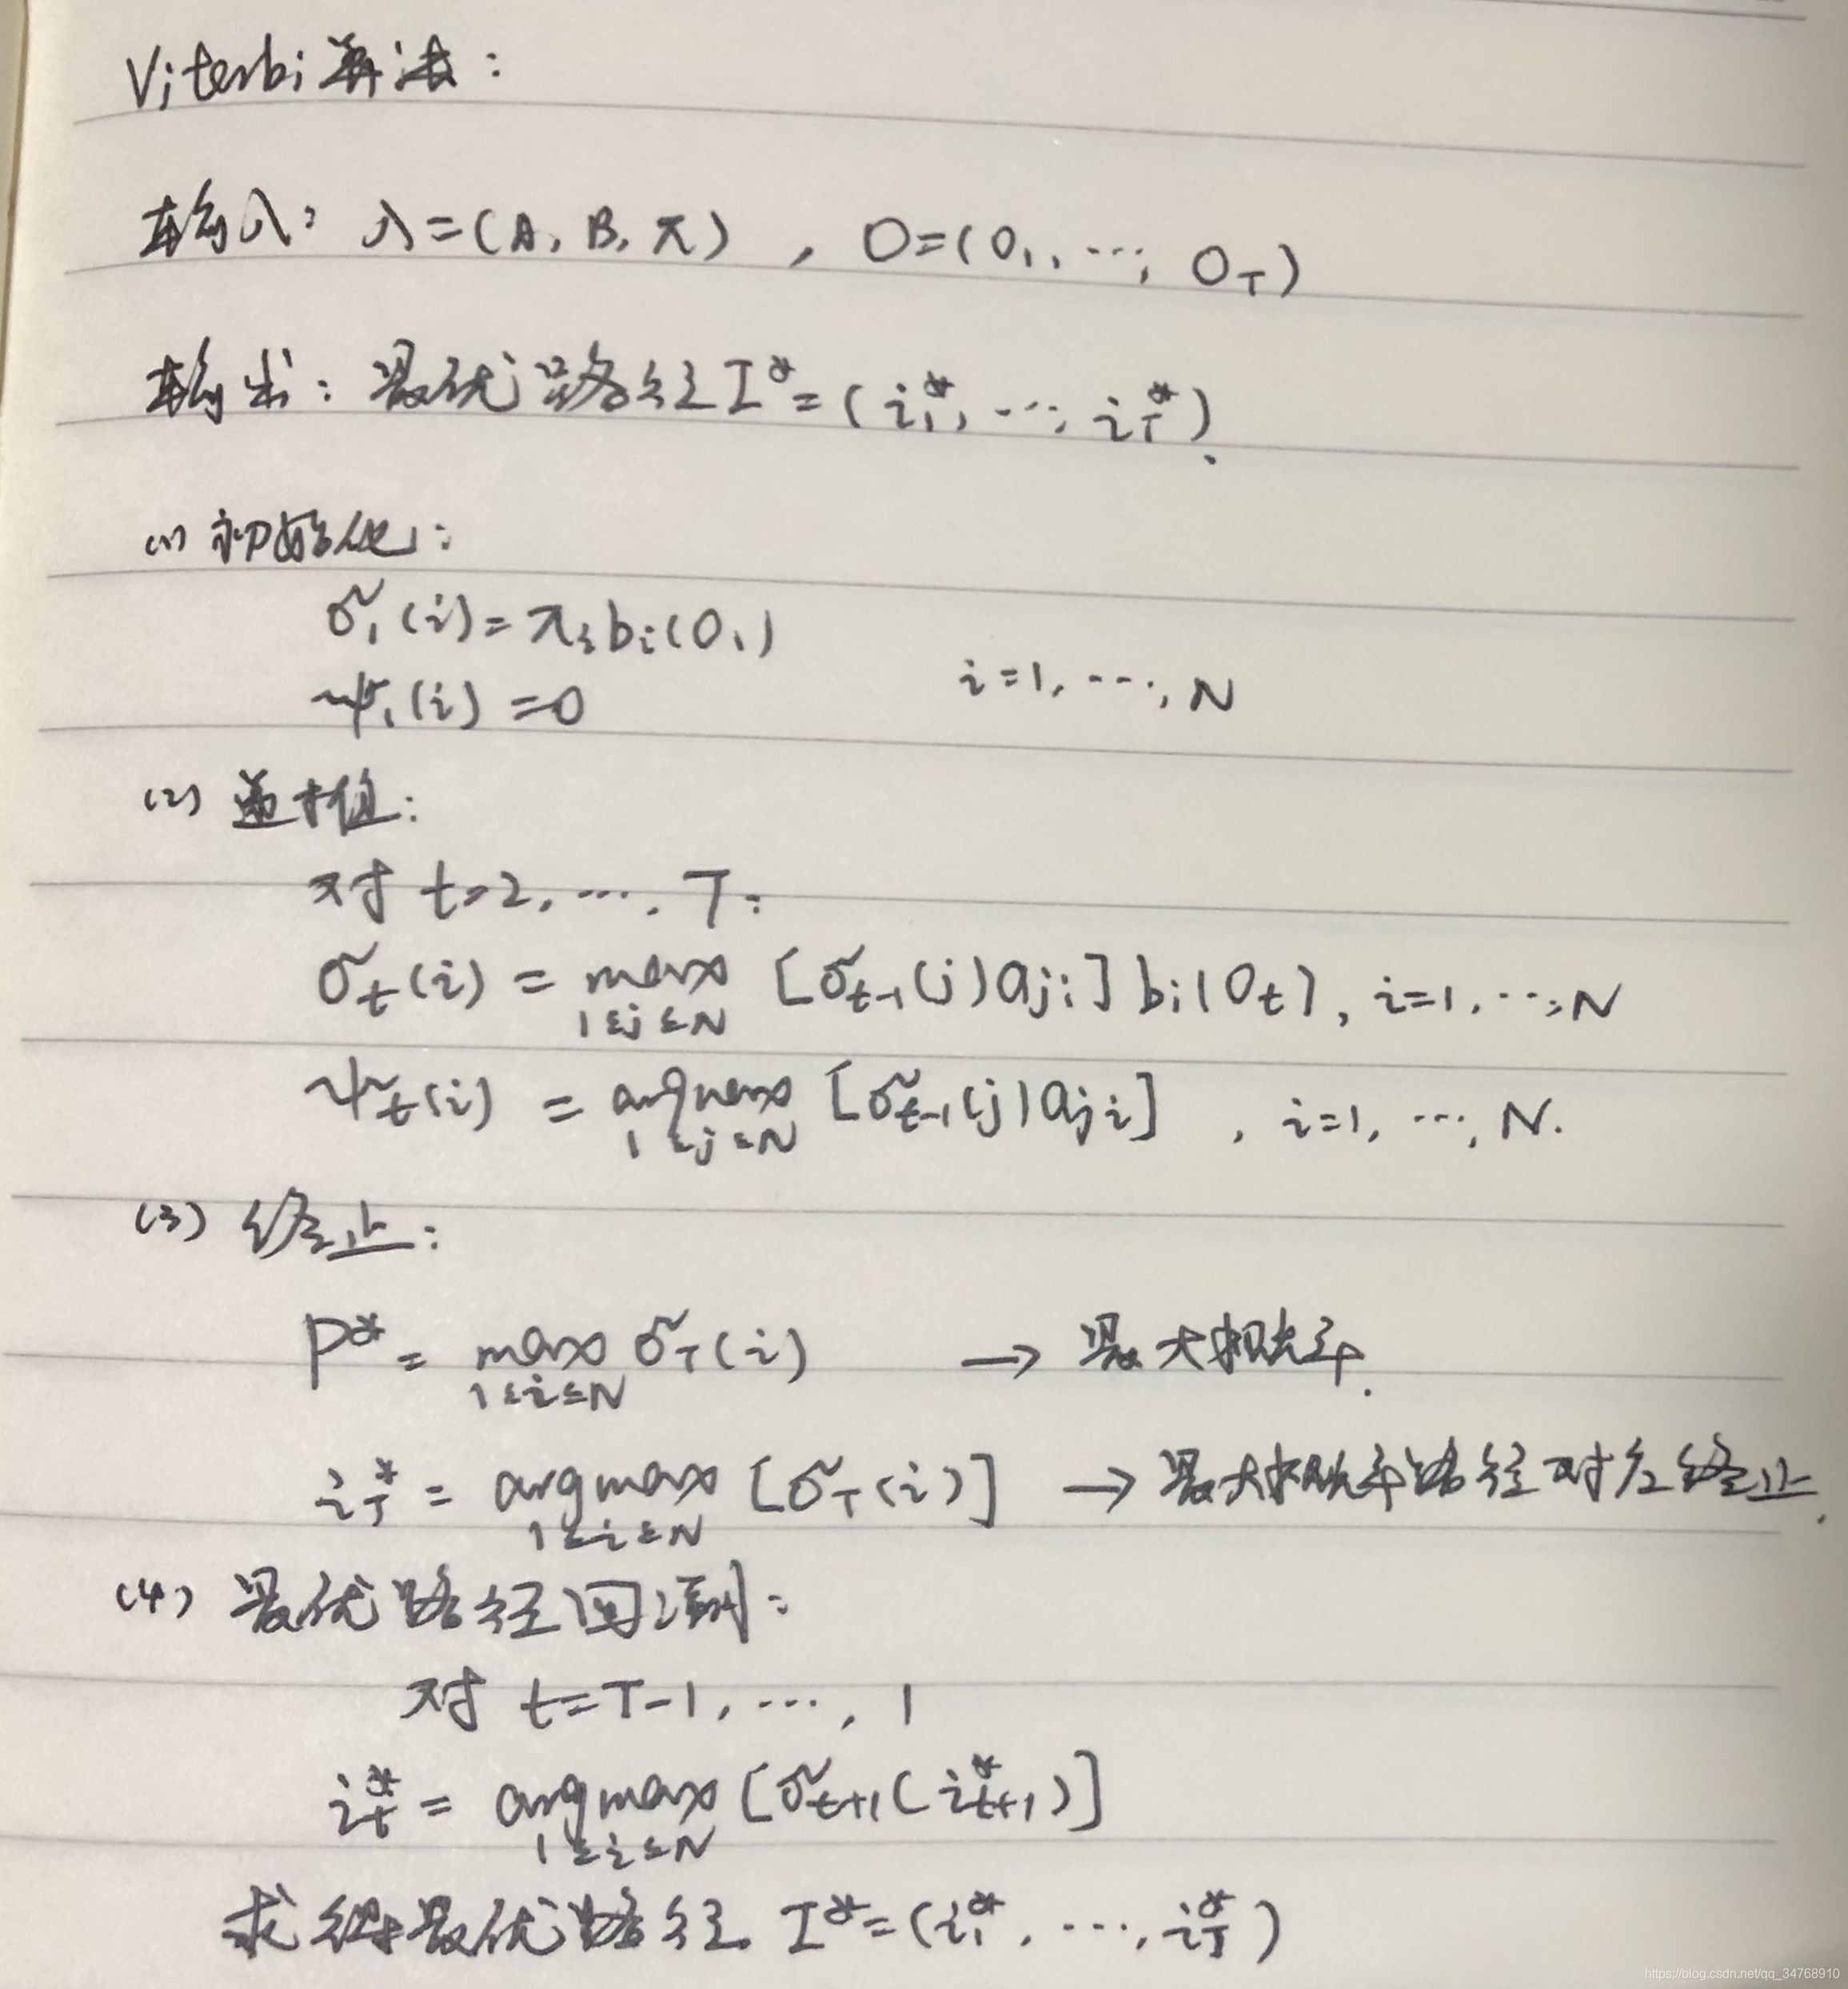 Viterbi算法：
输入：λ=(A, B, π) , O=(O₁, ⋯, O_T)
输出：最优路径I*=(i₁*, ⋯, i_T*).
(1) 初始化：
σ₁(i)=πᵢbᵢ(O₁)
i=1, ⋯, N
ψ₁(i)=0
(2) 递推：
对 t=2, ⋯, T：
σ_t(i) = max_{1≤j≤N} [σ_{t-1}(j)a_{ji}]bᵢ(O_t), i=1, ⋯, N
ψ_t(i) = argmax_{1≤j≤N} [σ_{t-1}(j)a_{ji}] , i=1, ⋯, N.
(3) 终止：
P* = max_{1≤i≤N} σ_T(i) → 最大概率.
i_T* = argmax_{1≤i≤N} [σ_T(i)] → 最大概率路径对应终止.
(4) 最优路径回溯：
对 t=T-1, ⋯, 1
i_t* = argmax_{1≤i≤N} [σ_{t+1}(i_{t+1}*)]
求得最优路径 I*=(i₁*, ⋯, i_T*)
https://blog.csdn.net/qq_34768910